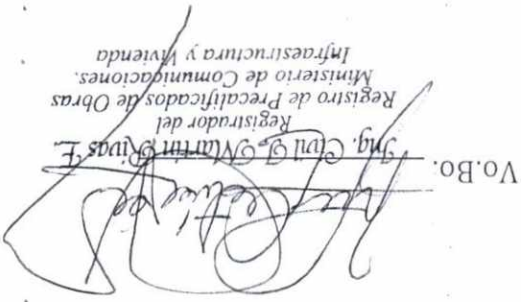 Vo.Bo.
Ing. Civil J. Martin Rivas E.
Registrador del
Registro de Precalificados de Obras
Ministerio de Comunicaciones.
Infraestructura y Vivienda